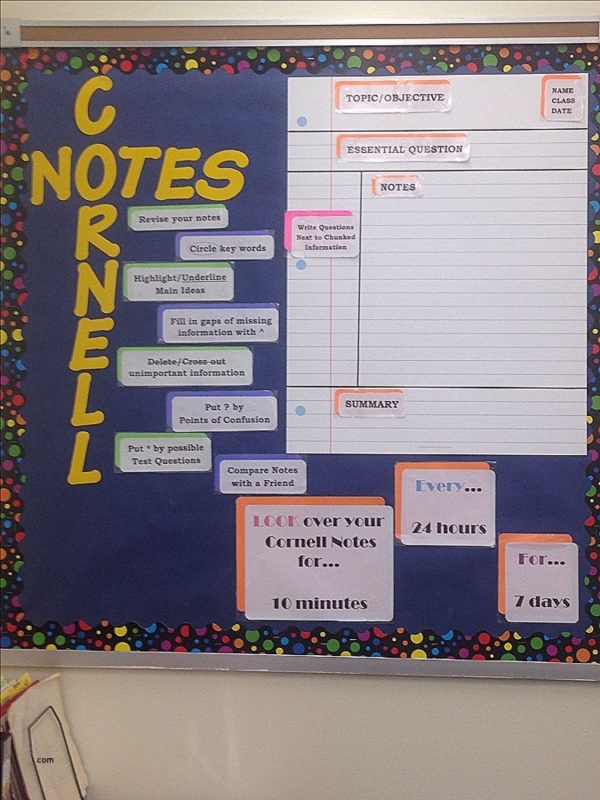 CORNELL
NOTES
TOPIC/OBJECTIVE
NAME
CLASS
DATE
ESSENTIAL QUESTION
NOTES
Write Questions
Next to Chunked
Information
SUMMARY
Revise your notes
Circle key words
Highlight/Underline
Main Ideas
Fill in gaps of missing
information with ^
Delete/Cross out
unimportant information
Put ? by
Points of Confusion
Put * by possible
Test Questions
Compare Notes
with a Friend
LOOK over your
Cornell Notes
for...
10 minutes
Every...
24 hours
For...
7 days
com